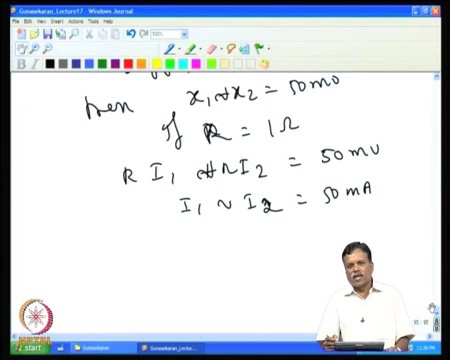 Gunasekaran_Lecture17 - Windows Journal
File Edit View Insert Actions Tools Help
100%
then x₁ ~ x₂ = 50 mv
If R = 1Ω
R I₁ ~ I₂ = 50 mv
I₁ ~ I₂ = 50 mA
NPTEL
start Gunasekaran Gunasekaran_Lectur...